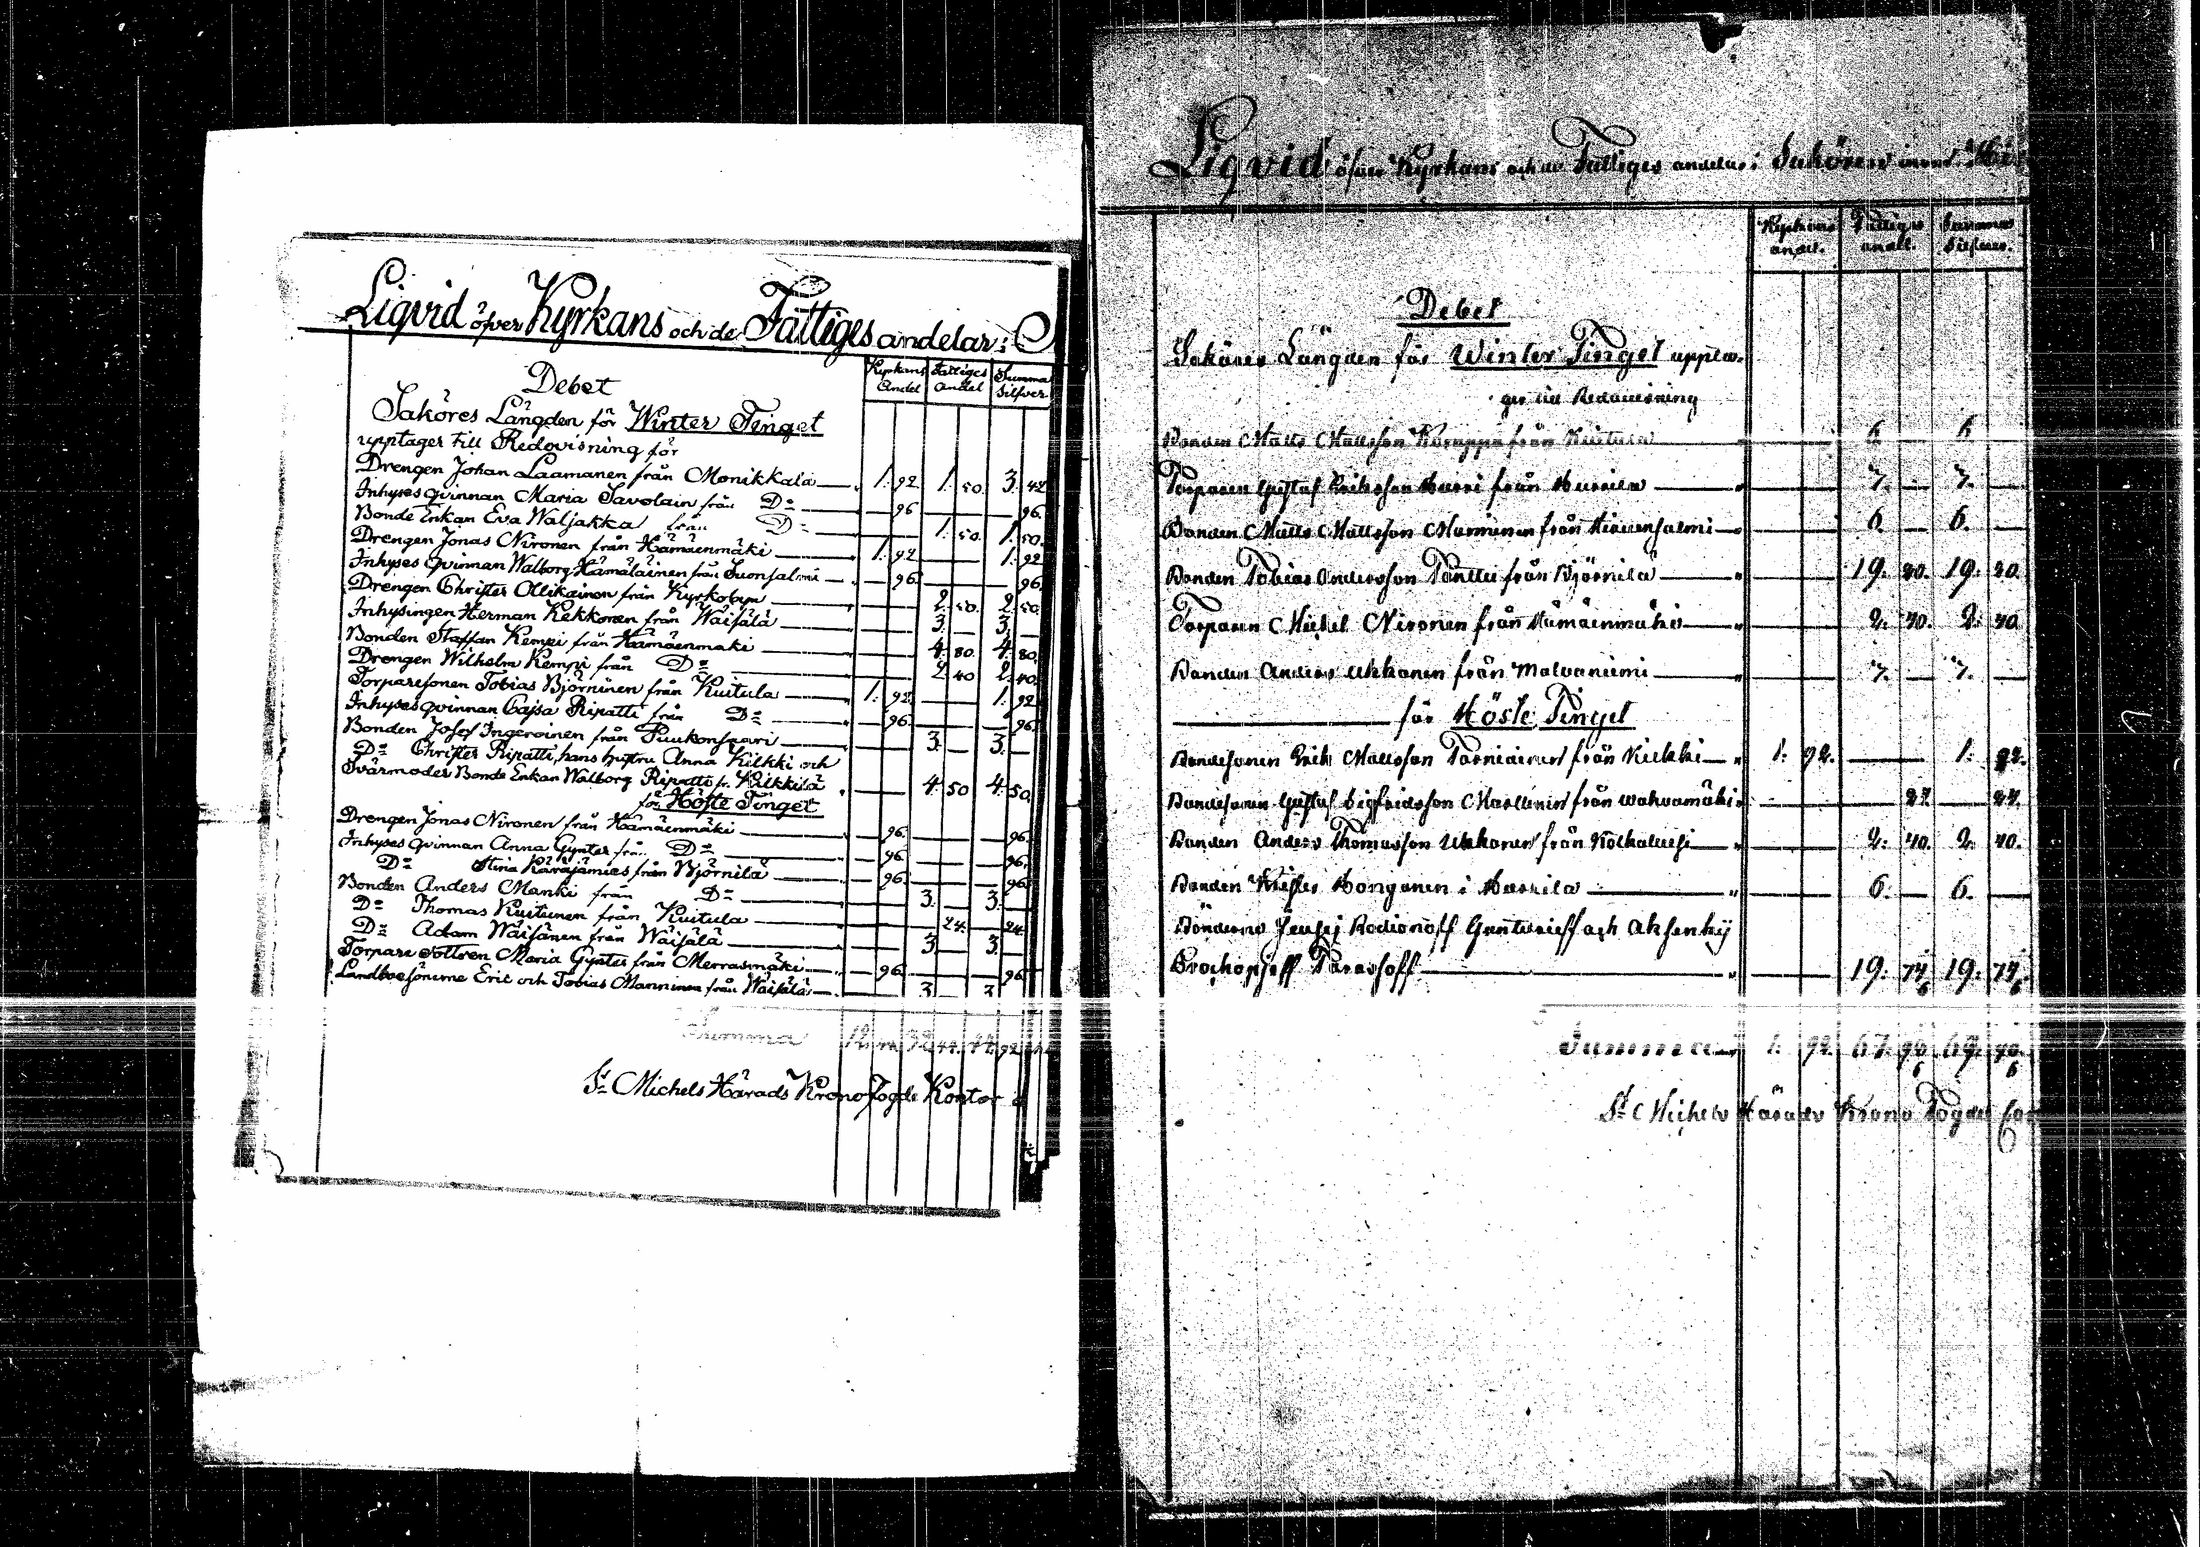 Liqvid öfver Kyrkans och de Fattiges andelar i S
Kyrkans Andel Fattiges Andel Summa Silfver
Debet
Saköres Längden för Winter Tinget
upptager till Redovisning för
Drengen Johan Laamanen från Monikkala 1. 92 1. 50. 3. 42
Inhyses qvinnan Maria Savolain från D:o 96 96.
Bonde Enkan Eva Waljakka från D:o 1. 50. 1. 50.
Drengen Jonas Nironen från Hämäenmäki 1. 92 1. 92
Inhyses qvinnan Walborg Hämäläinen från Suonsalmi 96. 96.
Drengen Christer Ollikainen från Kyrkobyn 2. 50. 2. 50.
Inhysingen Herman Kekkonen från Wäisälä 3. — 3. —
Bonden Staffan Kempi från Hämäenmäki 4. 80. 4. 80.
Drengen Wilhelm Kempi från D:o 2 40 2. 40.
Torparesonen Tobias Björninen från Kuitula 1. 92. 1. 92
Inhyses qvinnan Cajsa Ripatti från D:o 96. 96.
Bonden Josef Ingeroinen från Puukonsaari 3. — 3. —
D:o Christer Ripatti, hans hustru Anna Kilkki och
Svärmoder Bonde Enkan Walborg Ripatti fr. Kilkkilä 4. 50 4. 50.
för Höste Tinget
Drengen Jonas Nironen från Hämäenmäki 96. 96.
Inhyses qvinnan Anna Gynter från D:o 96. 96.
D:o Stina Karajämäes från Björnilä 96. 96.
Bonden Anders Manki från D:o 3. — 3. —
D:o Thomas Kuitunen från Kuitula 24. 24.
D:o Adam Wäisänen från Wäisälä 3 — 3. —
Torpare Dottren Maria Gynter från Merrasmäki 96. 96.
Landboesönerne Eric och Tobias Manninen från Wäisälä 3 3.
Summa
S:t Michels Härads Kronofogde Kontor d
Liqvid öfver Kyrkans och de Fattiges andelar i Saköres
Kyrkans andel. Fattiges andel. Summa Silfver.
Debet
Saköres Längden för Winter Tinget uppta-
ger till Redovisning
Bonden Matts Mattsson Karppa från Kuitula 6 6
Torparen Gustaf Eriksson Hurri från Hurrila 7. — 7. —
Bonden Matts Mattsson Manninen från Hirvensalmi 6. — 6. —
Bonden Tobias Andersson Panttu från Björnilä 19. 20. 19. 20
Torparen Michel Nironen från Hämäenmäki 2. 40. 2. 40
Bonden Anders Ukkonen från Malvaniemi 7. — 7. —
för Höste Tinget
Bondesonen Erik Mattsson Torniainen från Kilkki 1. 92. 1. 92.
Bondesonen Gustaf Sigfridsson Marttinen från Wahvamäki 24. 24.
Bonden Anders Thomasson Ukkonen från 2. 40. 2. 40.
Bonden Krister Hongonen i Hurrila 6. — 6. —
Bönderne Rodionoff och
Prochopjeff Tarasoff 19. 74 6 19. 74 6
Summa 1. 92. 67. 98 6 69. 90. 6
S:t Michels Härads Krono Fogde